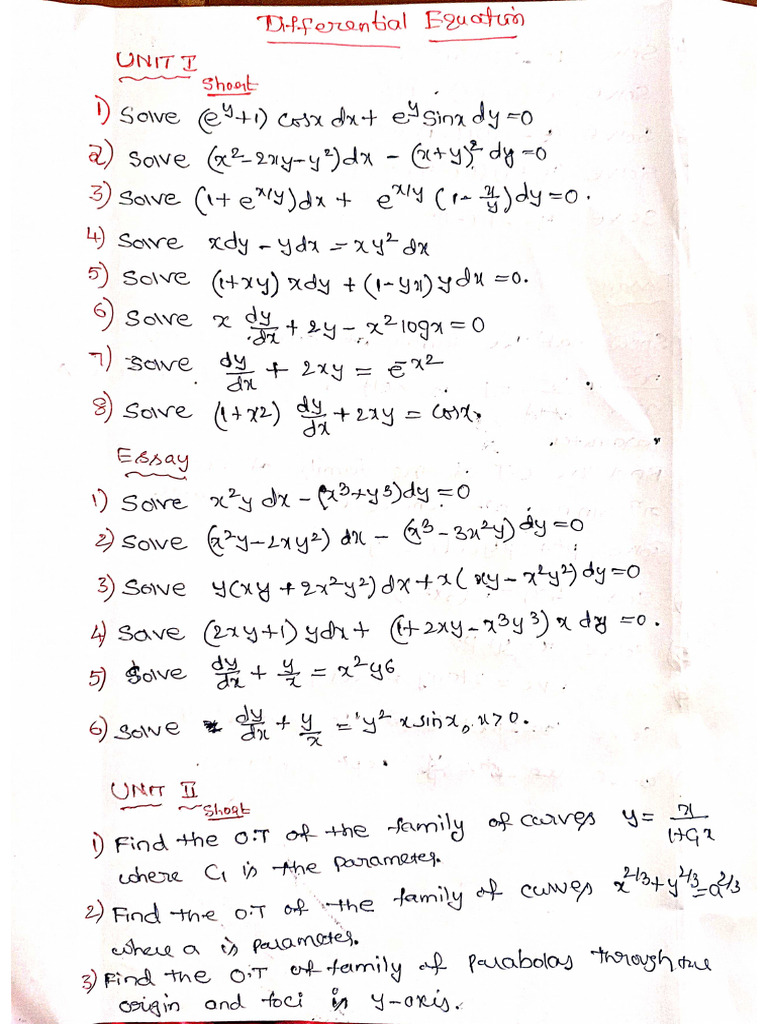 Differential Equation
UNIT I
Short
1) Solve (e^y+1) cosx dx + e^y sinx dy = 0
2) Solve (x²-2xy-y²)dx - (x+y)² dy = 0
3) Solve (1+e^x/y)dx + e^x/y (1-x/y)dy = 0.
4) Solve xdy - ydx = xy² dx
5) Solve (1+xy) xdy + (1-yx) y dx = 0.
6) Solve x dy/dx + 2y - x² logx = 0
7) Solve dy/dx + 2xy = e^-x2
8) Solve (1+x2) dy/dx + 2xy = cosx.
Essay
1) Solve x²y dx - (x³+y³)dy = 0
2) Solve (x²y-2xy²) dx - (x³-3x²y) dy = 0
3) Solve y(xy+2x²y²)dx + x(xy-x²y²)dy = 0
4) Solve (2xy+1) ydx + (1+2xy-x³y³) x dy = 0.
5) Solve dy/dx + y/x = x²y6
6) Solve dy/dx + y/x = y² x sinx, x>0.
UNIT II
Short
1) Find the O.T of the family of curves y = x/1+C₁x
where C₁ is the parameter.
2) Find the O.T of the family of curves x^2/3+y^2/3=a^2/3
where a is parameter.
3) Find the O.T of family of parabolas through the
origin and foci in y-axis.